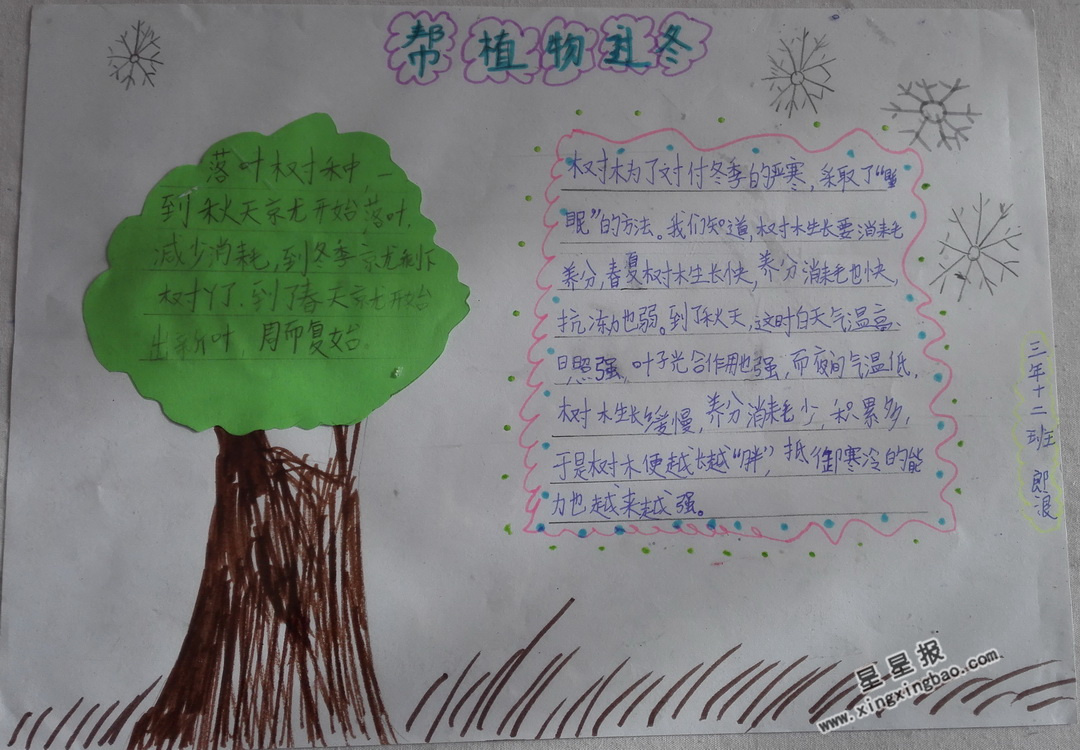 帮植物过冬
落叶树种,一
到秋天就开始落叶,
减少消耗,到冬季就剩下
树丫了.到了春天就开始
出新叶,周而复始.
树木为了对付冬季的严寒,采取了“睡
眠”的方法。我们知道,树木生长要消耗
养分,春夏树木生长快,养分消耗也快,
抗冻力也弱。到了秋天,这时白天气温高、
日照强,叶子光合作用也强,而夜间气温低,
树木生长缓慢,养分消耗少,积累多,
于是树木便越长越“胖”,抵御寒冷的能
力也越来越强。
三年十二班 郎浪
星星报
www.xingxingbao.com